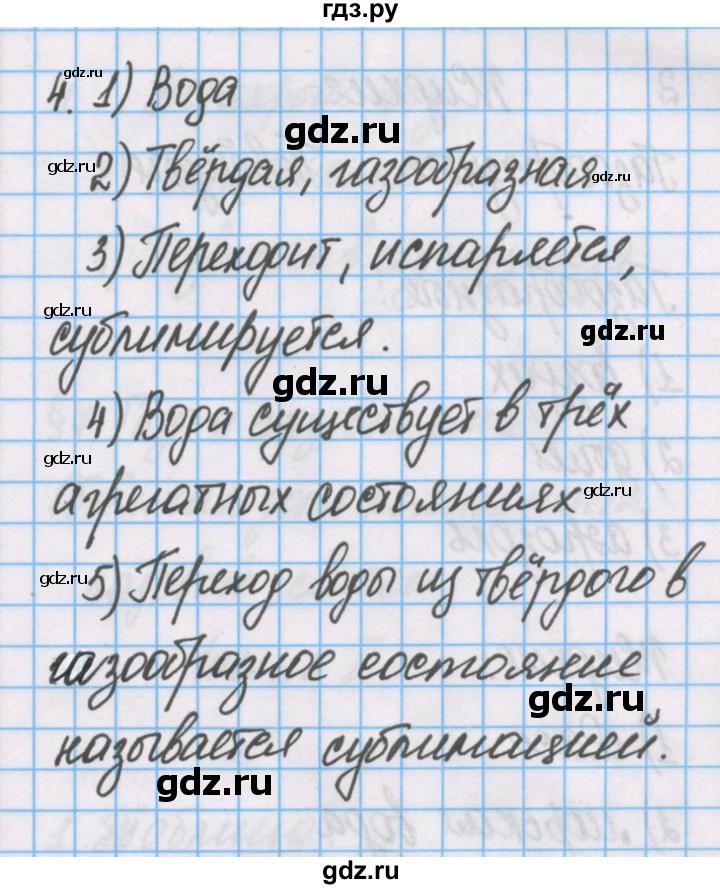 гдз.ру
gdz.ru
4. 1) Вода
gdz.ru
gdz.ru 2) Твёрдая, газообразная gdz.ru
3) Переходит, испаряется,
gdz.ru
сублимируется. gdz.ru
gdz.ru
4) Вода существует в трёх
gdz.ru
агрегатных состояниях gdz.ru
gdz.ru 5) Переход воды из твёрдого в
газообразное состояние
gdz.ru
называется сублимацией.
gdz.ru
gdz.ru